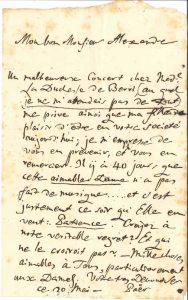 Mon bon Monsieur Alexandre
Un malheureux Concert chez Mad.e
la Duchesse de Berri, au quel
je ne m'attendois pas du tout,
me prive ainsi que ma
plaisir d'être en votre société
aujourd'hui; je m'empresse de
vous en prévenir, et vous en
remercier. Il y a 40 jours que
cette aimable Dame n'a pas
fait de musique.... et c'est
justement ce soir qu'elle en
veut. Patience. Croyez à
notre véritable regret
ne le croiroit pas? Mille choses
aimables à Tous, particulièrement
aux Dames. Votre
ce 20 Mai Paër